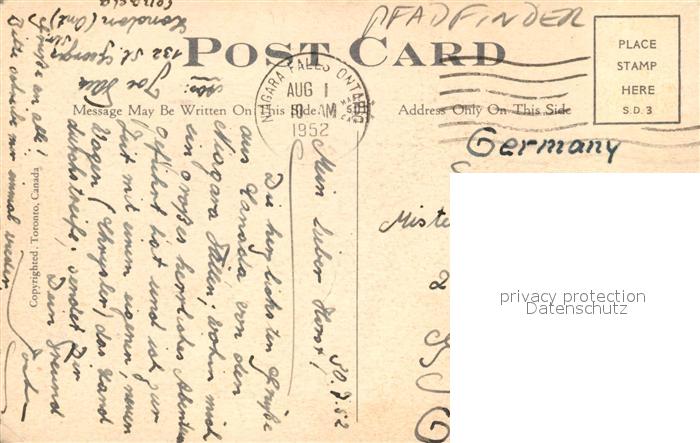 PFADFINDER
POST CARD
PLACE
STAMP
HERE
S.D.3
NIAGARA FALLS ONTARIO
AUG 1
10 AM
1952
Message May Be Written On This Side
Address Only On This Side
Germany
Miste
privacy protection
Datenschutz
30.7.52
Mein lieber Horst!
Die herzlichsten Grüße
aus Kanada von den
Niagara Fällen, wohin mich
ein großes herrliches Abenteu
geführt hat und ich zur
Zeit mit einem eigenen, neuen
Wagen (Chrysler) das Land
durchstreife, sendet Dir
Dein Freund
Grüße an alle!
Bitte schreibe mir einmal wieder
132 St. George
London (Ont)
Canada
Copyrighted. Toronto, Canada